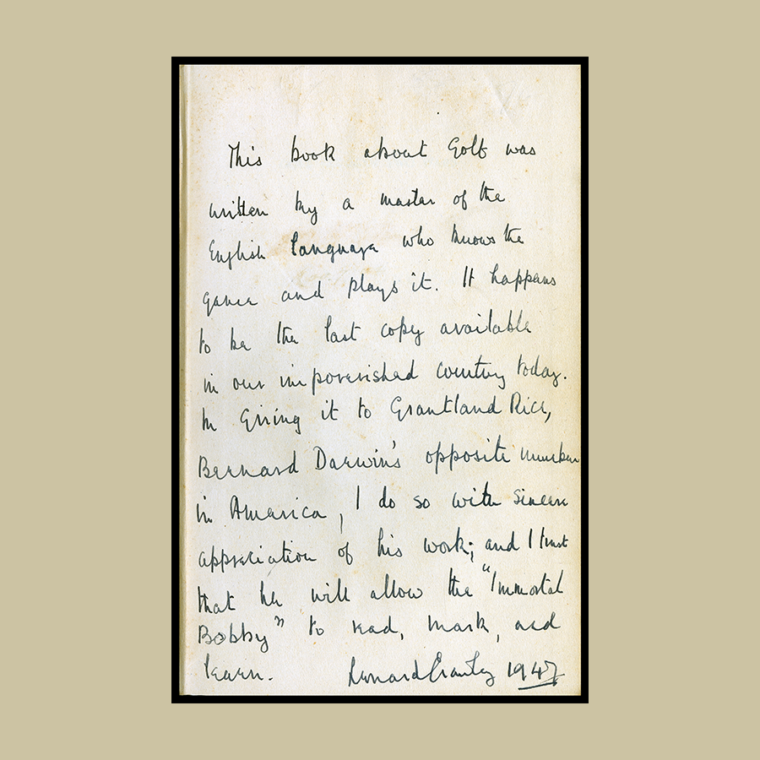 This book about Golf was
written by a master of the
English language who knows the
game and plays it. It happens
to be the last copy available
in our impoverished country today.
In Giving it to Grantland Rice,
Bernard Darwin's opposite number
in America, I do so with sincere
appreciation of his work; and I trust
that he will allow the "Immortal
Bobby" to read, mark, and
learn. Leonard Crawley 1947